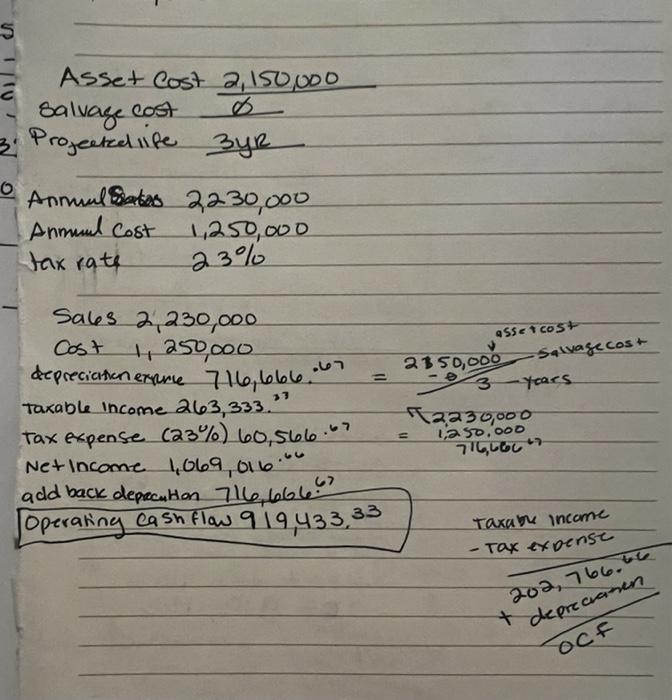 Asset Cost 2,150,000
Salvage cost Ø
Projected life 3yr
Annual Sales 2,230,000
Annual Cost 1,250,000
tax rate 23%
Sales 2,230,000
Cost 1,250,000
asset cost
depreciation expense 716,666.67 = 2150,000 - 0 Salvage cost
3 - years
Taxable Income 263,333.33
2,230,000
Tax expense (23%) 60,566.67 = 1,250,000
716,666.67
Net Income 1,069,016.66
add back depreciation 716,666.67
Operating Cash flow 919,433.33
Taxable income
- Tax expense
202,766.66
+ depreciation
OCF